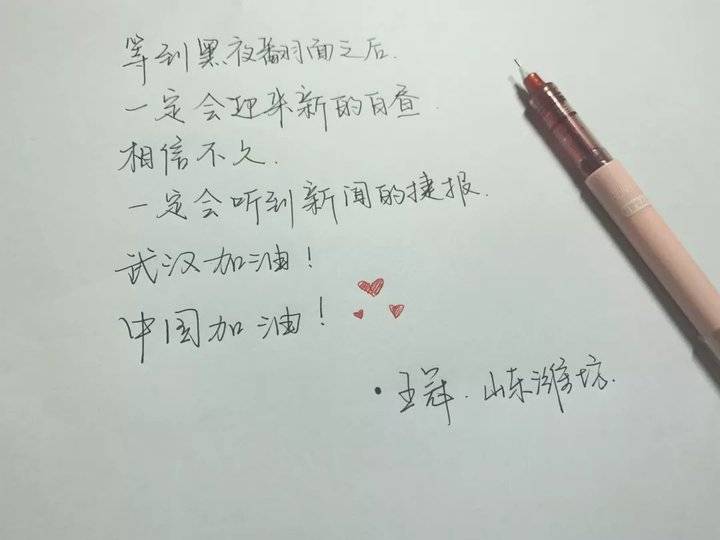 等到黑夜翻面之后.
一定会迎来新的白昼.
相信不久.
一定会听到新闻的捷报.
武汉加油!
中国加油!
·王冠.山东潍坊.